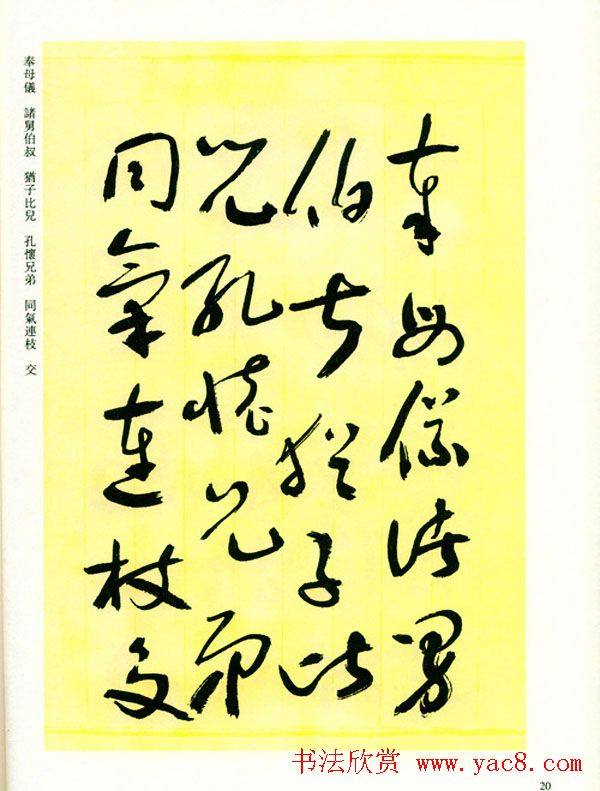 奉母儀 諸舅伯叔 猶子比兒 孔懷兄弟 同氣連枝 交
奉母儀諸舅
伯叔猶子比
兒孔懷兄弟
同氣連枝交
书法欣赏 www.yac8.com
20